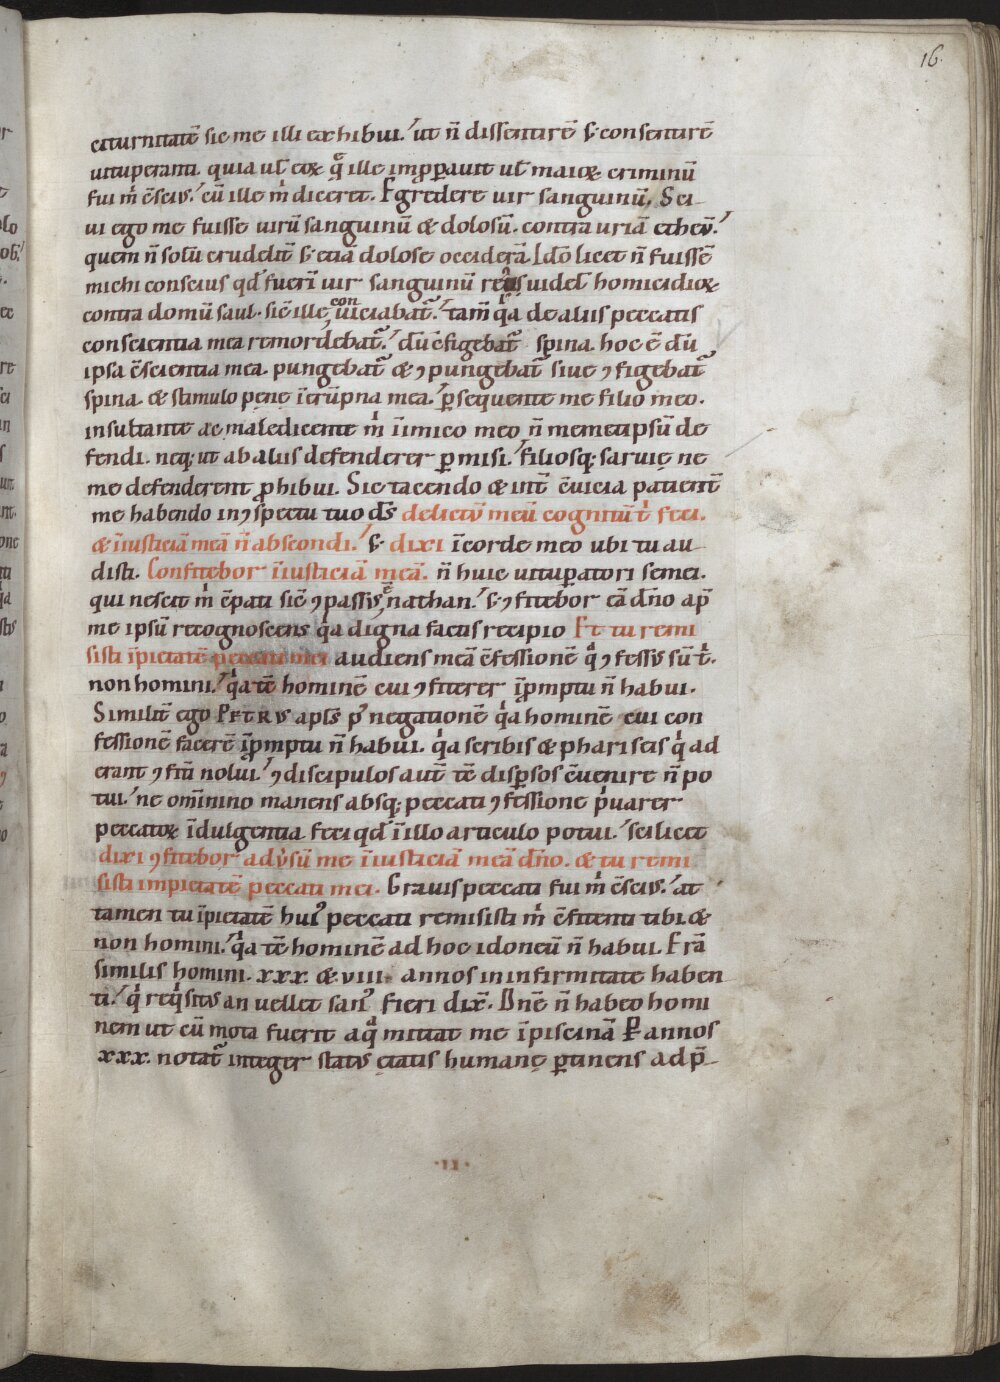 16.
citurnitatē sic me illi exhibui. ut n̄ dissentirē s; consentirē
vituperanti. quia uł eoꝝ q̄ ille improperauit uł maioꝝ criminū
fui m̍ c̄scius. cū ille m̍ diceret. Egredere uir sanguinū. Sci
ui ego me fuisse uirū sanguinū & dolosū. contra uriā etheū.
quem n̄ solū crudelit̄ s; etiā dolose occiderā. Idō licet n̄ fuissē
michi conscius qd̕ fueri͂ uir sanguinū reus uidel; homicidioꝝ
contra domū saul. sic̄ ille conuiciabat᷑. tam̄ q̍a de aliis peccatis
conscientia mea remordebat᷑. dū c̄figebat᷑ spina. hoc ē dū
ipsa c̄scientia mea. pungebat᷑ & ꝯpungebat᷑ siue ꝯfigebat᷑
spina. & stimulo penę i͞ erūpna mea. ꝑsequente me filio meo.
insultante ac maledicente m̍ i͞imico meo n̄ memetipsū de
fendi. neq; ut ab aliis defenderer ꝑmisi. filiosq; saruię ne
me defenderent ꝓhibui. Sic tacendo & int̄ c̄uicia patient̄
me habendo in ꝯspectu tuo dš delictū meū cognitū t̍ feci.
& i͞iusticiā meā n̄ abscondi. s; dixi i͞ corde meo ubi tu au
disti. Confitebor i͞iusticiā meā. n̄ huic uituꝑatori semei.
qui nescit m̍ c̄pati sic̄ ꝯpassus ē nathan. s; ꝯfitebor eā dn̄o ap̄
me ipsū recognoscens q̍a digna factis recipio Et tu remi
sisti i͞pietatē peccati mei audiens meā c̄fessionē q̍ ꝯfessus sū t̍.
non homini. q̍a tē hominē cui ꝯfiterer i͞promptu n̄ habui.
Similit̄ ego PETRUS apłs p̕ negationē q̍a hominē cui con
fessionē facerē i͞promptu n̄ habui. q̍a scribis & phariseis q̍ ad
erant ꝯfit̄i nolui. ꝯdiscipulos aut̄ tē disp̄sos c̄uenire n̄ po
tui. ne omi͞nino manens absq; peccati ꝯfessione p̍uarer
peccatoꝝ i͞dulgentia. feci qd̕ i͞ illo articulo potui. scilicet
dixi ꝯfitebor adu̕sū me i͞iusticiā meā dn̄o. & tu remi
sisti impietatē peccati mei. Grauis peccati fui m̍ c̄scius. at
tamen tu i͞pietatē hui᷒ peccati remisisti m̍ c̄fitenti tibi &
non homini. q̍a tē hominē ad hoc idoneū n̄ habui. Erā
similis homini. xxx. & viii. annos in infirmitate haben
ti. q̍ req̍situs an uellet san᷒ fieri dix̄. Dn̄e n̄ habeo homi
nem ut cū mota fuerit aq̍ mittat me i͞ piscinā. P̄ annos
xxx. notat᷑ integer status ętatis humanę ꝑtinens ad p̄
.II.